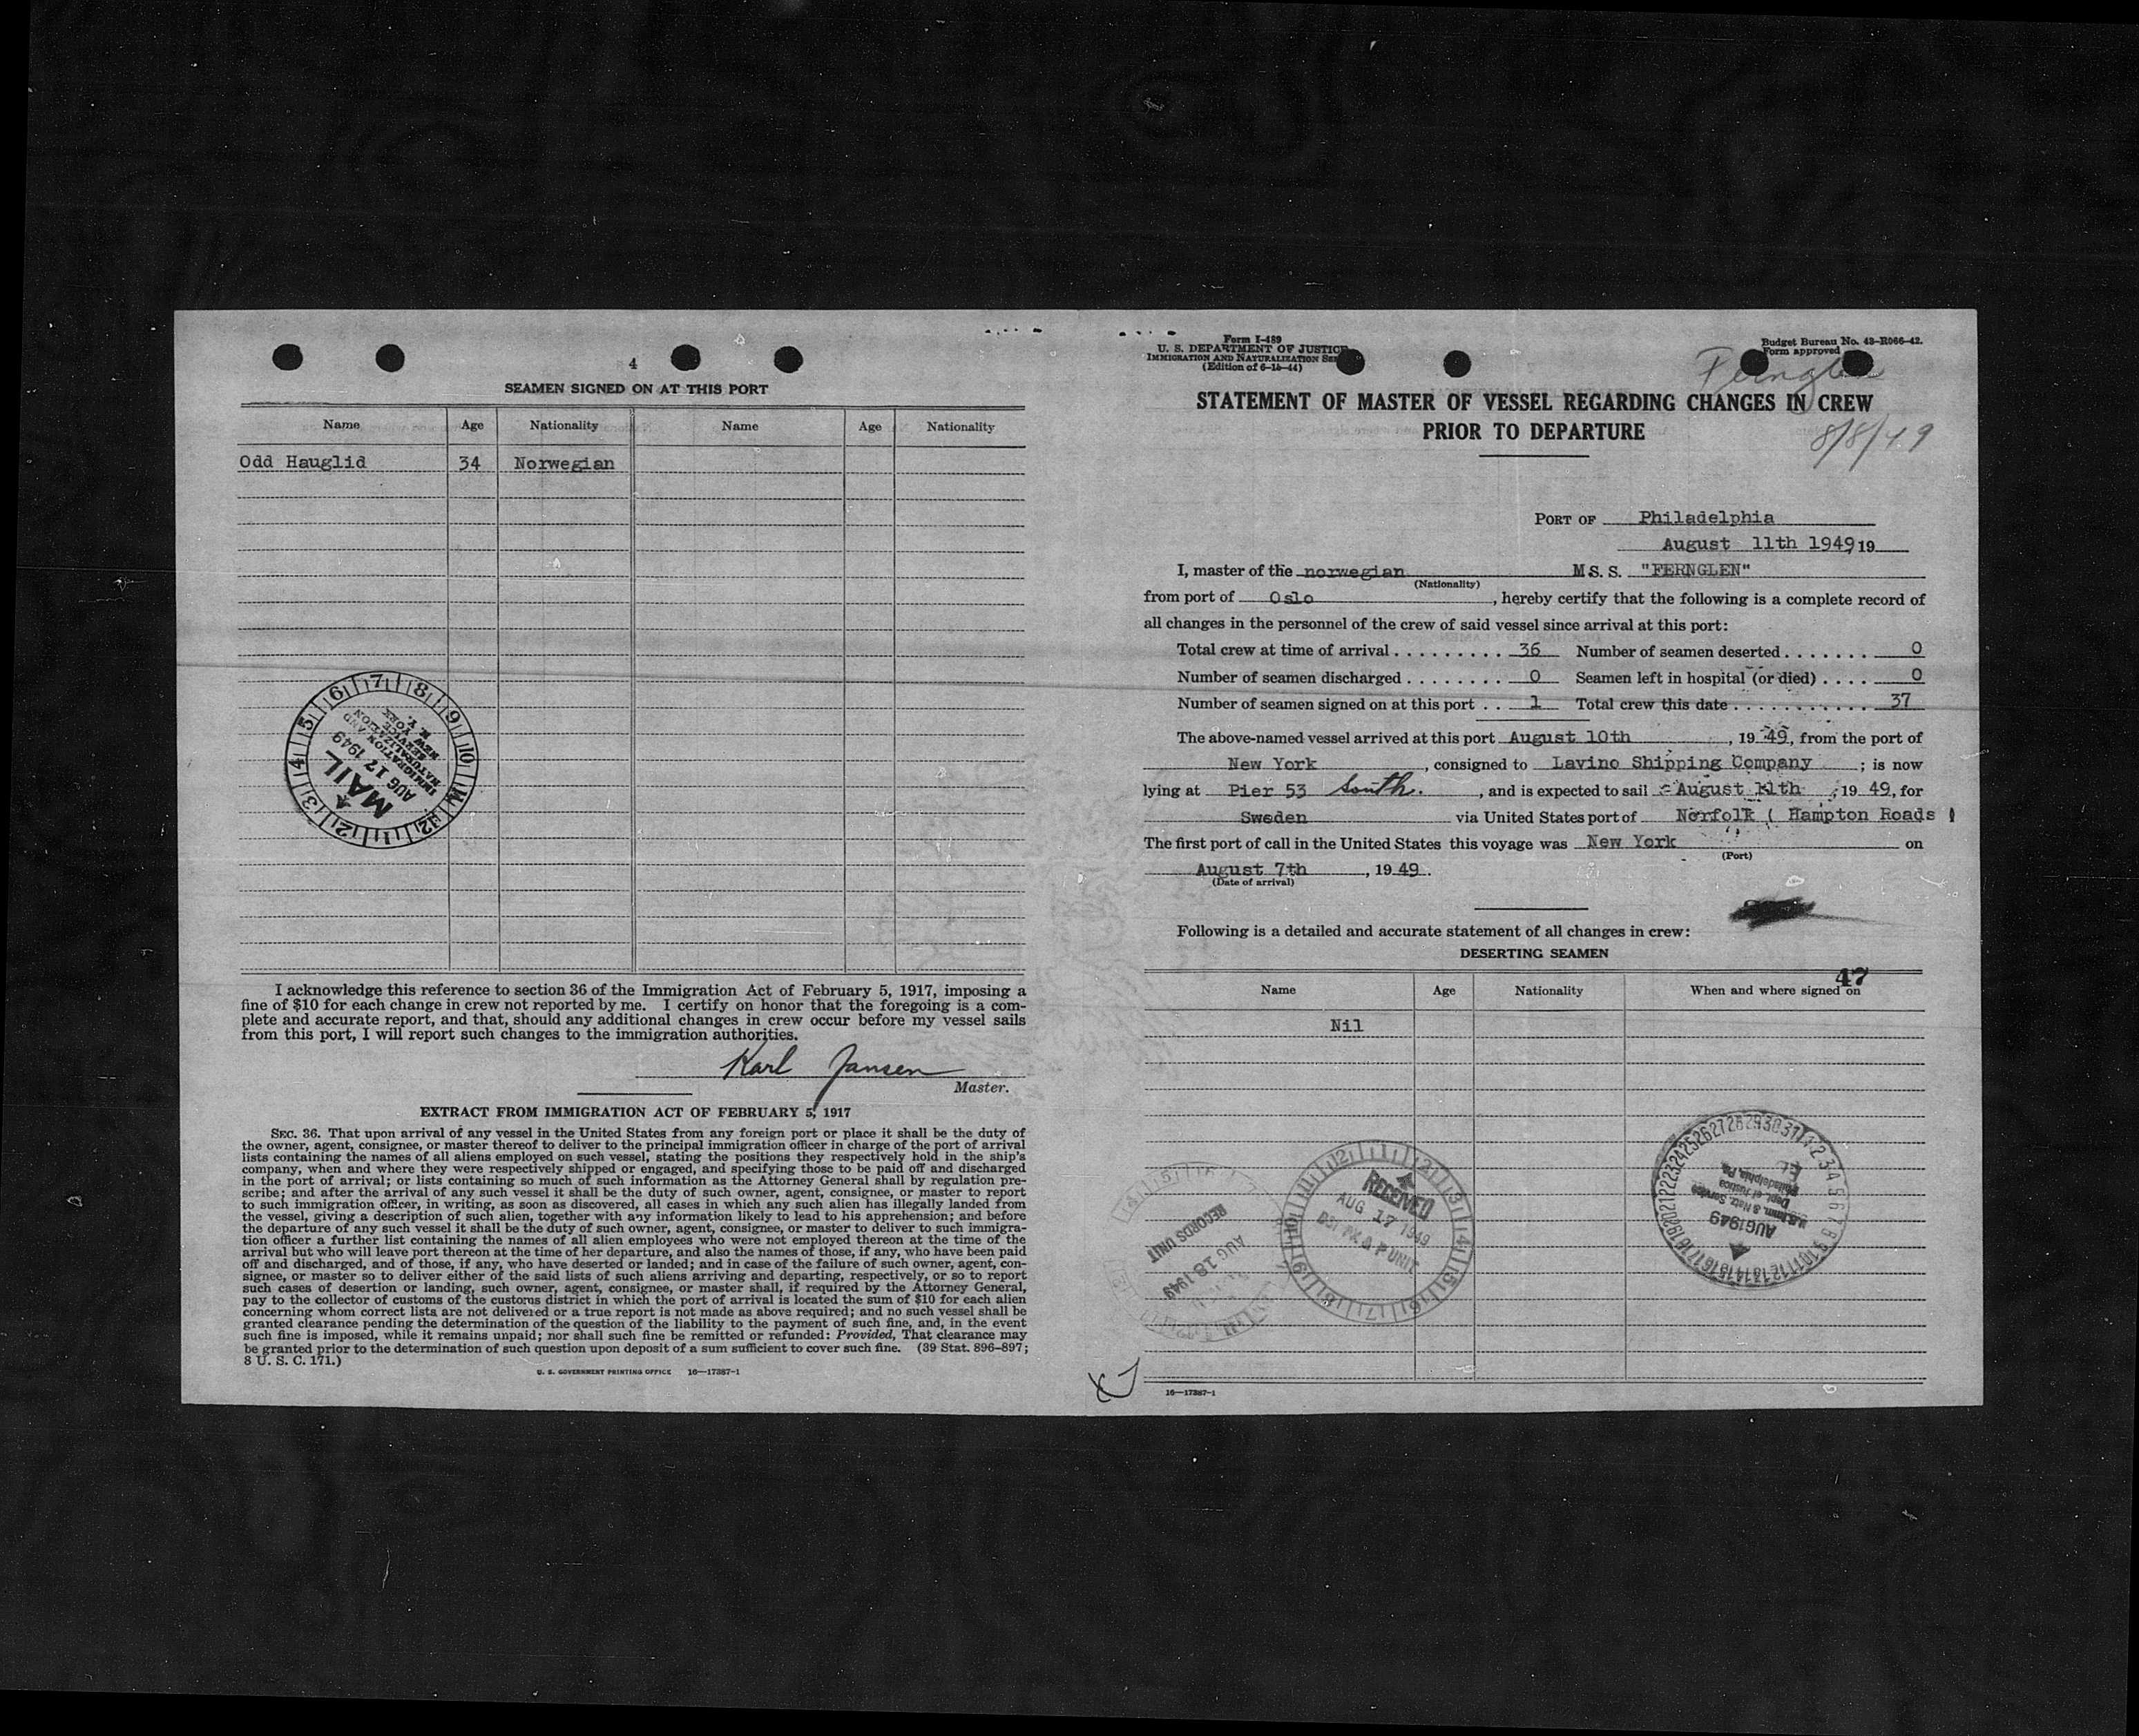 4
SEAMEN SIGNED ON AT THIS PORT
Name Age Nationality Name Age Nationality
Odd Hauglid 34 Norwegian
MAIL
AUG 17 1949
IMMIGRATION AND
NATURALIZATION
SERVICE
NEW YORK
N. Y.
I acknowledge this reference to section 36 of the Immigration Act of February 5, 1917, imposing a
fine of $10 for each change in crew not reported by me. I certify on honor that the foregoing is a com-
plete and accurate report, and that, should any additional changes in crew occur before my vessel sails
from this port, I will report such changes to the immigration authorities.
Karl Jansen
Master.
EXTRACT FROM IMMIGRATION ACT OF FEBRUARY 5, 1917
SEC. 36. That upon arrival of any vessel in the United States from any foreign port or place it shall be the duty of
the owner, agent, consignee, or master thereof to deliver to the principal immigration officer in charge of the port of arrival
lists containing the names of all aliens employed on such vessel, stating the positions they respectively hold in the ship's
company, when and where they were respectively shipped or engaged, and specifying those to be paid off and discharged
in the port of arrival; or lists containing so much of such information as the Attorney General shall by regulation pre-
scribe; and after the arrival of any such vessel it shall be the duty of such owner, agent, consignee, or master to report
to such immigration officer, in writing, as soon as discovered, all cases in which any such alien has illegally landed from
the vessel, giving a description of such alien, together with any information likely to lead to his apprehension; and before
the departure of any such vessel it shall be the duty of such owner, agent, consignee, or master to deliver to such immigra-
tion officer a further list containing the names of all alien employees who were not employed thereon at the time of the
arrival but who will leave port thereon at the time of her departure, and also the names of those, if any, who have been paid
off and discharged, and of those, if any, who have deserted or landed; and in case of the failure of such owner, agent, con-
signee, or master so to deliver either of the said lists of such aliens arriving and departing, respectively, or so to report
such cases of desertion or landing, such owner, agent, consignee, or master shall, if required by the Attorney General,
pay to the collector of customs of the customs district in which the port of arrival is located the sum of $10 for each alien
concerning whom correct lists are not delivered or a true report is not made as above required; and no such vessel shall be
granted clearance pending the determination of the question of the liability to the payment of such fine, and, in the event
such fine is imposed, while it remains unpaid; nor shall such fine be remitted or refunded: Provided, That clearance may
be granted prior to the determination of such question upon deposit of a sum sufficient to cover such fine. (39 Stat. 896-897;
8 U. S. C. 171.)
U. S. GOVERNMENT PRINTING OFFICE 16—17387-1
Form I-489
U. S. DEPARTMENT OF JUSTICE
IMMIGRATION AND NATURALIZATION
(Edition of 6-15-44)
Budget Bureau No. 43-R066-42.
Form approved
Fernglen
8/8/49
STATEMENT OF MASTER OF VESSEL REGARDING CHANGES IN CREW
PRIOR TO DEPARTURE
PORT OF Philadelphia
August 11th 1949 19
I, master of the norwegian M S. S. "FERNGLEN"
(Nationality)
from port of Oslo, hereby certify that the following is a complete record of
all changes in the personnel of the crew of said vessel since arrival at this port:
Total crew at time of arrival . . . . . . . . . 36 Number of seamen deserted . . . . . . . 0
Number of seamen discharged . . . . . . . . 0 Seamen left in hospital (or died) . . . . 0
Number of seamen signed on at this port . . 1 Total crew this date . . . . . . . . . . . . 37
The above-named vessel arrived at this port August 10th, 19 49, from the port of
New York, consigned to Lavino Shipping Company; is now
lying at Pier 53 South., and is expected to sail August 11th, 19 49, for
Sweden via United States port of Norfolk ( Hampton Roads )
The first port of call in the United States this voyage was New York on
(Port)
August 7th, 19 49.
(Date of arrival)
Following is a detailed and accurate statement of all changes in crew:
DESERTING SEAMEN
47
Name Age Nationality When and where signed on
Nil
RECORDS UNIT
AUG 18 1949
RECEIVED
AUG 17 1949
P UNIT
AUG 1949
U.S. Imm. & Natz. Service
Dept. of Justice
Philadelphia, Pa.
16—17387-1